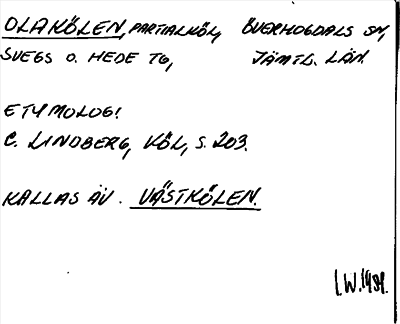 OLAKÖLEN, PARTIALKÖL, ÖVERHOGDALS SN,
SVEGS O. HEDE TG, JÄMTL. LÄN
ETYMOLOGI
C. LINDBERG, KÖL, S. 203.
KALLAS ÄV. VÄSTKÖLEN.
I.W. 1981.